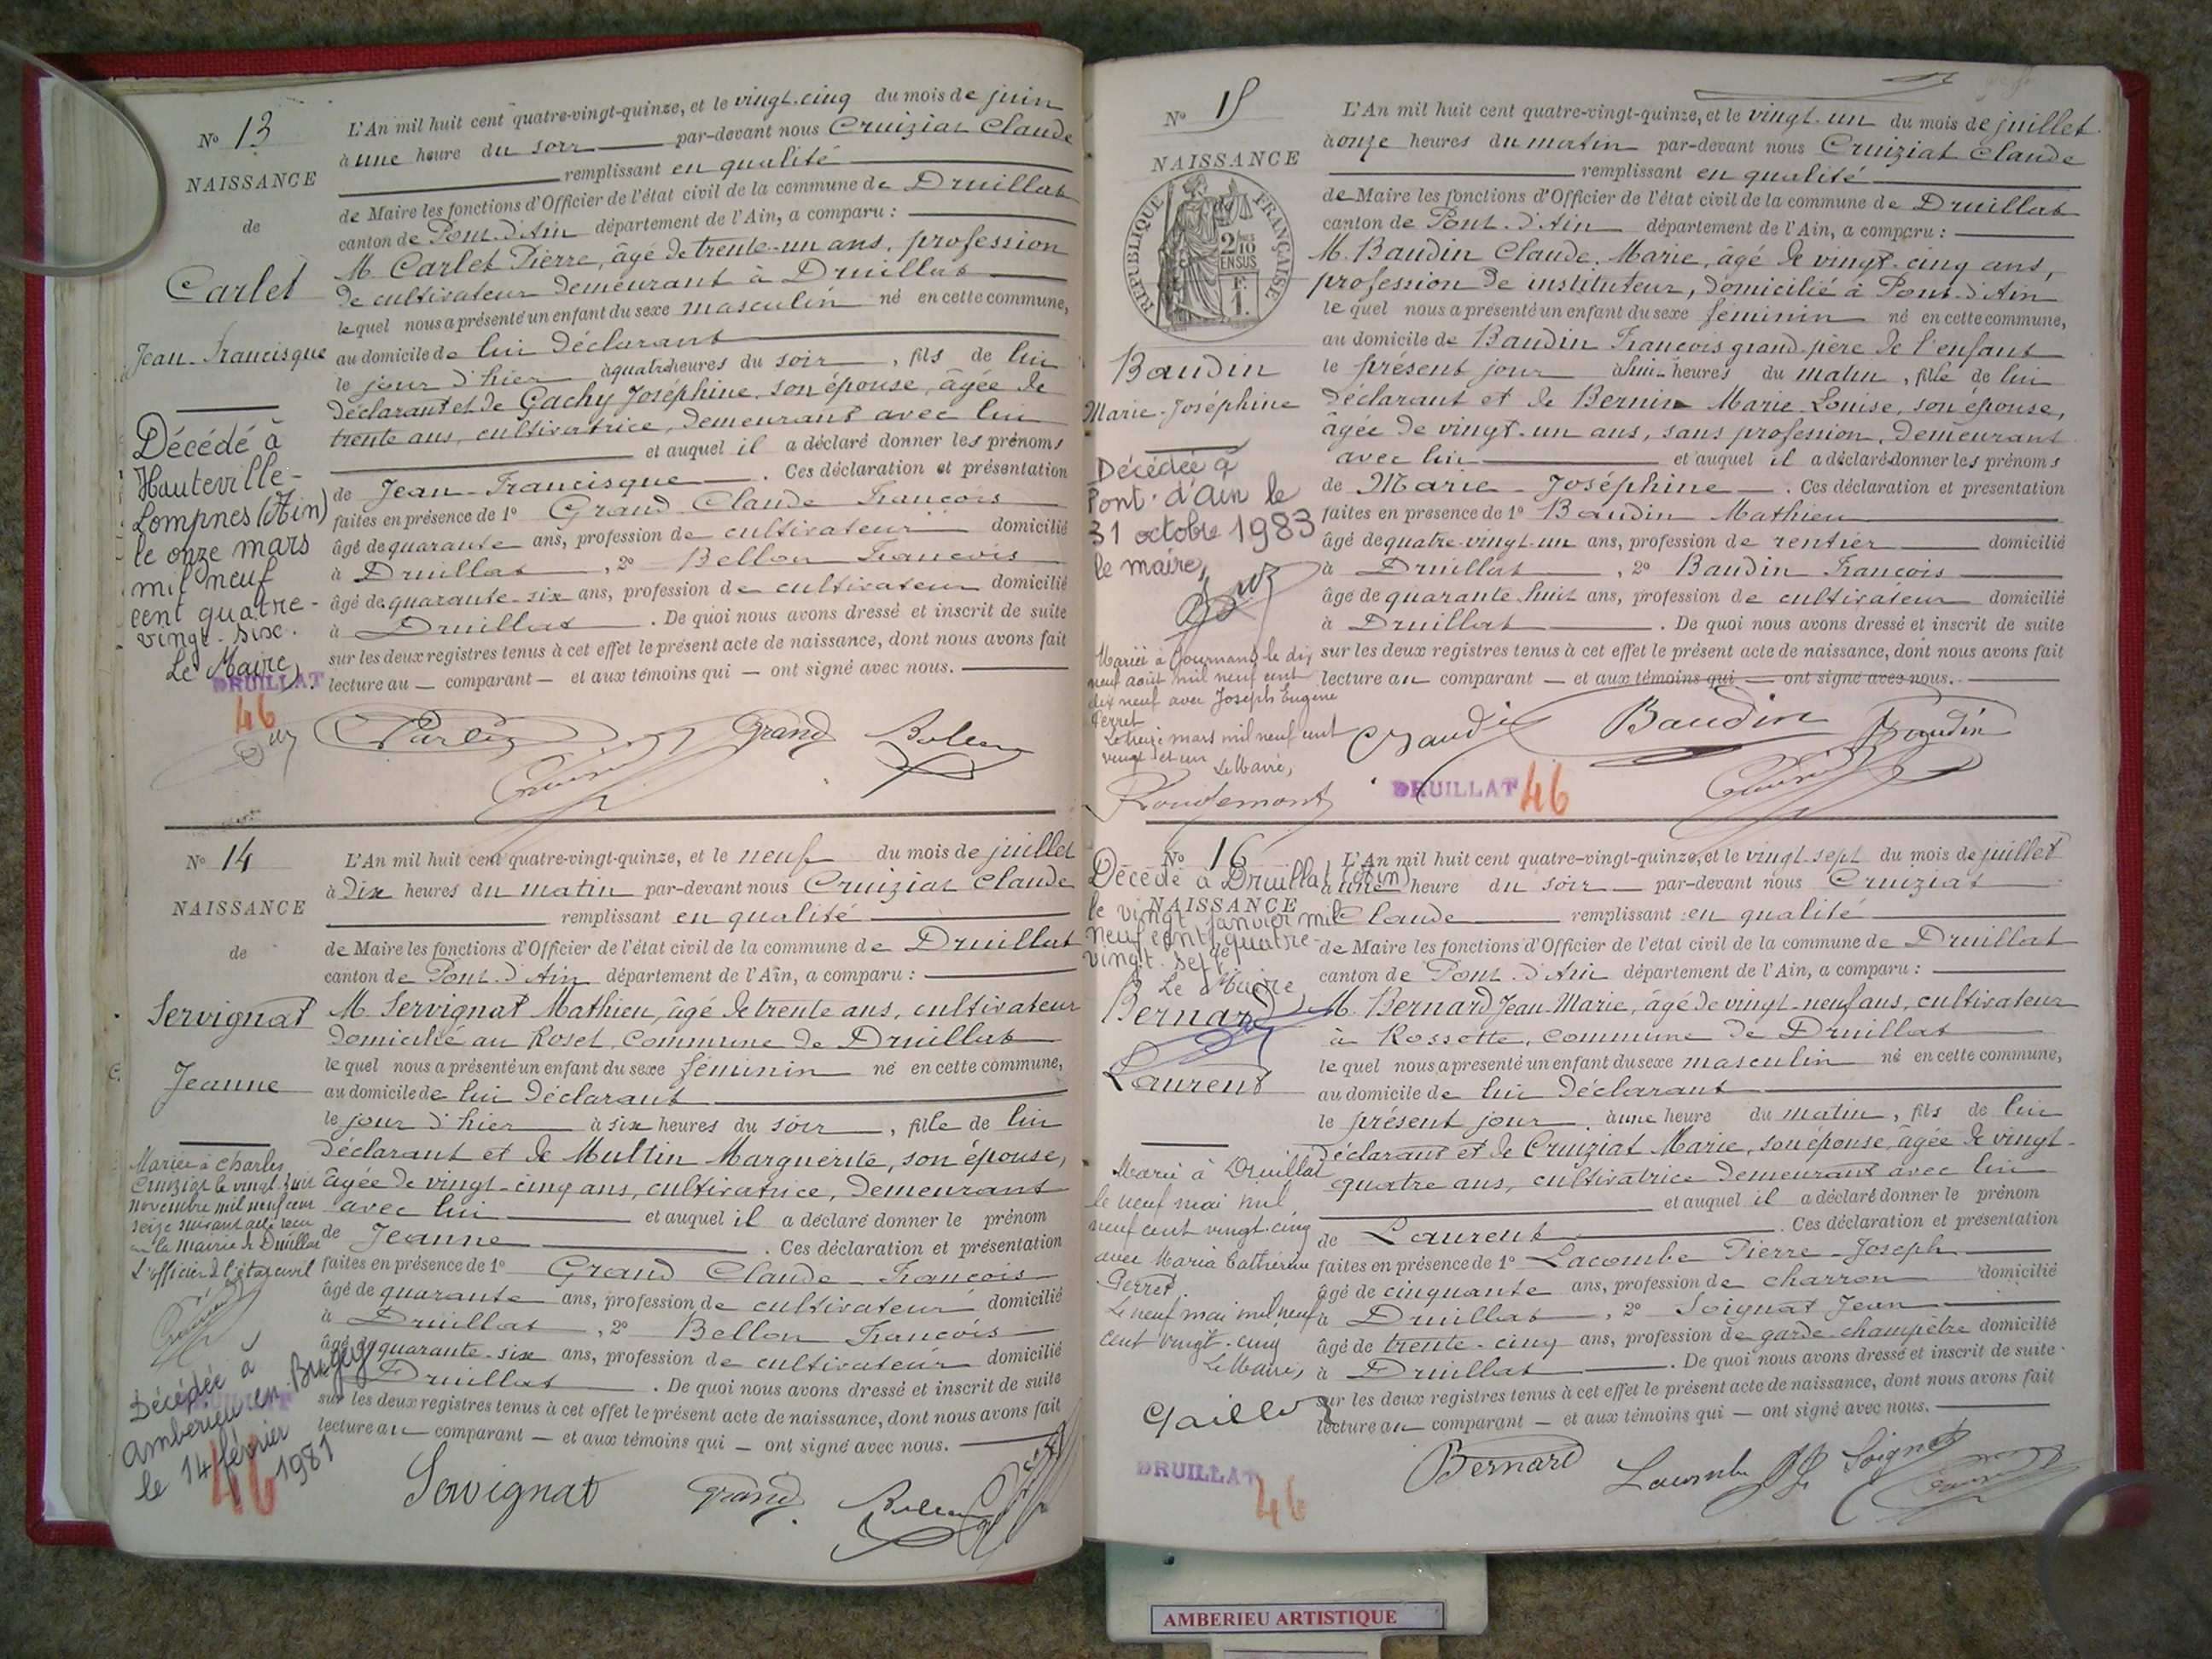 Nº 13
NAISSANCE
de
Carlet
Jean-Francisque
Décédé à
Hauteville-
Lompnes (Ain)
le onze mars
mil neuf
cent quatre-
vingt-six.
Le Maire,
DRUILLAT
46
L'An mil huit cent quatre-vingt-quinze, et le vingt-cinq du mois de juin
à une heure du soir par-devant nous Cruiziat Claude
remplissant en qualité
de Maire les fonctions d'Officier de l'état civil de la commune de Druillat
canton de Pont-d'Ain département de l'Ain, a comparu :
M. Carlet Pierre, âgé de trente-un ans, profession
de cultivateur demeurant à Druillat
lequel nous a présenté un enfant du sexe masculin né en cette commune,
au domicile de lui déclarant
le jour d'hier à quatre heures du soir, fils de lui
déclarant et de Gachy Joséphine, son épouse, âgée de
trente ans, cultivatrice, demeurant avec lui
et auquel il a déclaré donner les prénoms
de Jean-Francisque. Ces déclaration et présentation
faites en présence de 1º Grand Claude François
âgé de quarante ans, profession de cultivateur domicilié
à Druillat, 2º Bellon François
âgé de quarante-six ans, profession de cultivateur domicilié
à Druillat. De quoi nous avons dressé et inscrit de suite
sur les deux registres tenus à cet effet le présent acte de naissance, dont nous avons fait
lecture au comparant et aux témoins qui ont signé avec nous.
Grand
Nº 14
NAISSANCE
de
Servignat
Jeanne
Mariée à Charles
Cruiziat le vingt huit
novembre mil neuf cent
seize suivant acte reçu
en la mairie de Druillat
L'officier de l'état civil
Décédée à
Ambérieu en Bugey
le 14 février 1981
46
L'An mil huit cent quatre-vingt-quinze, et le neuf du mois de juillet
à dix heures du matin par-devant nous Cruiziat Claude
remplissant en qualité
de Maire les fonctions d'Officier de l'état civil de la commune de Druillat
canton de Pont-d'Ain département de l'Ain, a comparu :
M. Servignat Mathieu, âgé de trente ans, cultivateur
domicilié au Roset, commune de Druillat
lequel nous a présenté un enfant du sexe féminin né en cette commune,
au domicile de lui déclarant
le jour d'hier à six heures du soir, fille de lui
déclarant et de Multin Marguerite, son épouse,
âgée de vingt-cinq ans, cultivatrice, demeurant
avec lui et auquel il a déclaré donner le prénom
de Jeanne. Ces déclaration et présentation
faites en présence de 1º Grand Claude-François
âgé de quarante ans, profession de cultivateur domicilié
à Druillat, 2º Bellon François
âgé de quarante-six ans, profession de cultivateur domicilié
à Druillat. De quoi nous avons dressé et inscrit de suite
sur les deux registres tenus à cet effet le présent acte de naissance, dont nous avons fait
lecture au comparant et aux témoins qui ont signé avec nous.
Servignat Grand
Nº 15
NAISSANCE
RÉPUBLIQUE FRANÇAISE
2/10 EN SUS
F. 1.
Baudin
Marie-Joséphine
Décédée à
Pont-d'Ain le
31 octobre 1983
le maire,
Mariée à Journans le dix
neuf août mil neuf cent
dix neuf avec Joseph Eugène
Perret
Le treize mars mil neuf cent
vingt et un
Le Maire,
Rougemont
L'An mil huit cent quatre-vingt-quinze, et le vingt-un du mois de juillet
à onze heures du matin par-devant nous Cruiziat Claude
remplissant en qualité
de Maire les fonctions d'Officier de l'état civil de la commune de Druillat
canton de Pont-d'Ain département de l'Ain, a comparu :
M. Baudin Claude-Marie, âgé de vingt-cinq ans,
profession de instituteur, domicilié à Pont-d'Ain
lequel nous a présenté un enfant du sexe féminin né en cette commune,
au domicile de Baudin François grand-père de l'enfant
le présent jour à huit heures du matin, fille de lui
déclarant et de Bernin Marie-Louise, son épouse,
âgée de vingt-un ans, sans profession, demeurant
avec lui et auquel il a déclaré donner les prénoms
de Marie-Joséphine. Ces déclaration et présentation
faites en présence de 1º Baudin Mathieu
âgé de quatre-vingt-un ans, profession de rentier domicilié
à Druillat, 2º Baudin François
âgé de quarante-huit ans, profession de cultivateur domicilié
à Druillat. De quoi nous avons dressé et inscrit de suite
sur les deux registres tenus à cet effet le présent acte de naissance, dont nous avons fait
lecture au comparant et aux témoins qui ont signé avec nous.
Baudin Baudin Baudin
DRUILLAT 46
Nº 16
NAISSANCE
de
Décédé à Druillat (Ain)
le vingt janvier mil
neuf cent quatre-
vingt-sept
Le Maire
Bernard
Laurent
Marié à Druillat
le neuf mai mil
neuf cent vingt-cinq
avec Maria Catherine
Perret.
Le neuf mai mil neuf
cent vingt-cinq
Le Maire,
DRUILLAT 46
L'An mil huit cent quatre-vingt-quinze, et le vingt-sept du mois de juillet
à une heure du soir par-devant nous Cruiziat
Claude remplissant en qualité
de Maire les fonctions d'Officier de l'état civil de la commune de Druillat
canton de Pont-d'Ain département de l'Ain, a comparu :
M. Bernard Jean-Marie, âgé de vingt-neuf ans, cultivateur
à Rossette, commune de Druillat
lequel nous a présenté un enfant du sexe masculin né en cette commune,
au domicile de lui déclarant
le présent jour, à une heure du matin, fils de lui
déclarant et de Cruiziat Marie, son épouse, âgée de vingt-
quatre ans, cultivatrice demeurant avec lui
et auquel il a déclaré donner le prénom
de Laurent. Ces déclaration et présentation
faites en présence de 1º Lacombe Pierre-Joseph
âgé de cinquante ans, profession de charron domicilié
à Druillat, 2º Soignat Jean
âgé de trente-cinq ans, profession de garde-champêtre domicilié
à Druillat. De quoi nous avons dressé et inscrit de suite
sur les deux registres tenus à cet effet le présent acte de naissance, dont nous avons fait
lecture au comparant et aux témoins qui ont signé avec nous.
Bernard Lacombe Soignat
AMBERIEU ARTISTIQUE